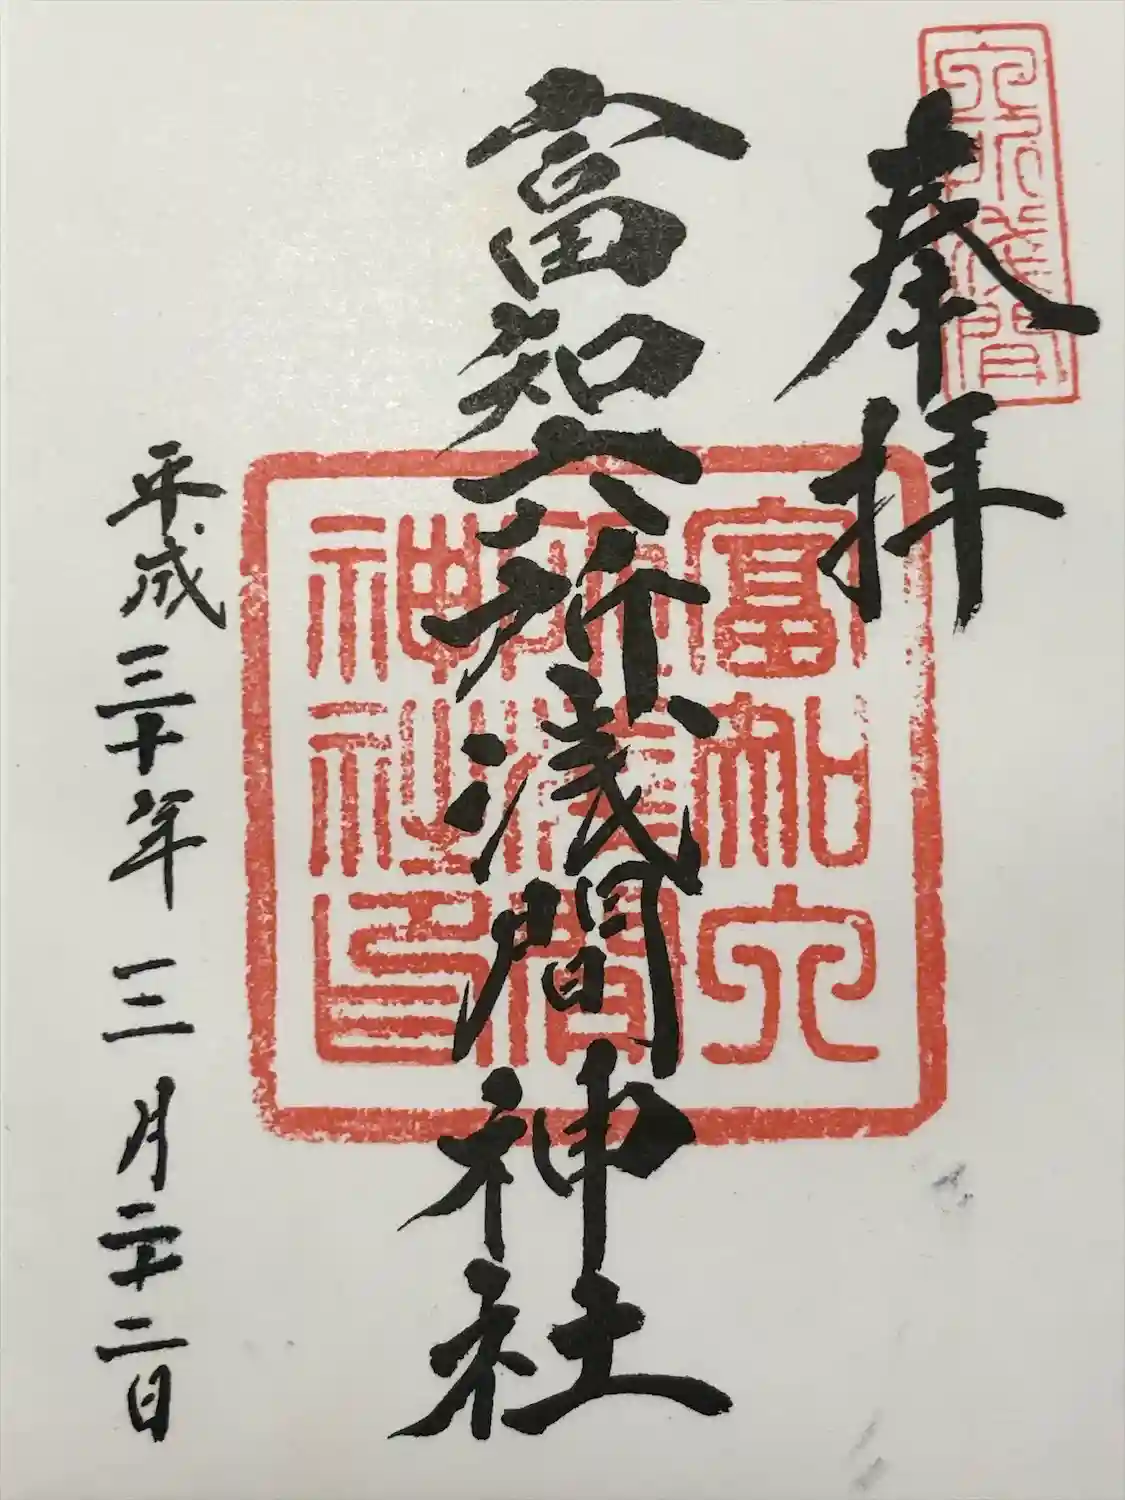 六所浅間
奉拝
富知六
所浅間
神社印
富知六所浅間神社
平成三十年三月二十二日